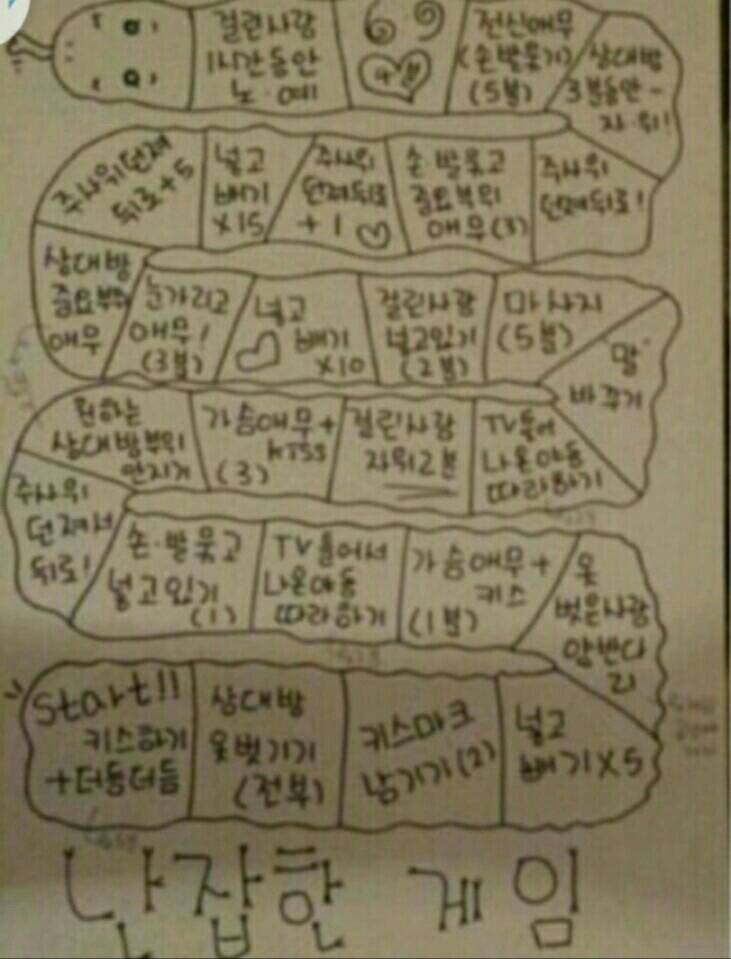 걸린사람
1시간동안
노·예
69
전신애무
(손발묶기)
(5분)
상대방
3분동안
자·위!
주사위던져
뒤로+5
넣고
빼기
X15
주사위
던져뒤로
+1
손·발묶고
중요부위
애무(3)
주사위
던져뒤로!
상대방
중요부위
애무
눈가리고
애무!
(3분)
넣고
빼기
X10
걸린사람
넣고있기
(2분)
마사지
(5분)
"말"
바꾸기
원하는
상대방부위
만지기
가슴애무+
kiss
(3)
걸린사람
자위2분
TV틀어
나온야동
따라하기
주사위
던져서
뒤로!
손·발묶고
넣고있기
(1)
TV틀어서
나온야동
따라하기
가슴애무+
키스
(1분)
옷
벗은사람
START!!
키스하기
+더듬더듬
상대방
옷벗기기
(전부)
키스마크
남기기(2)
넣고
빼기X5
난잡한 게임